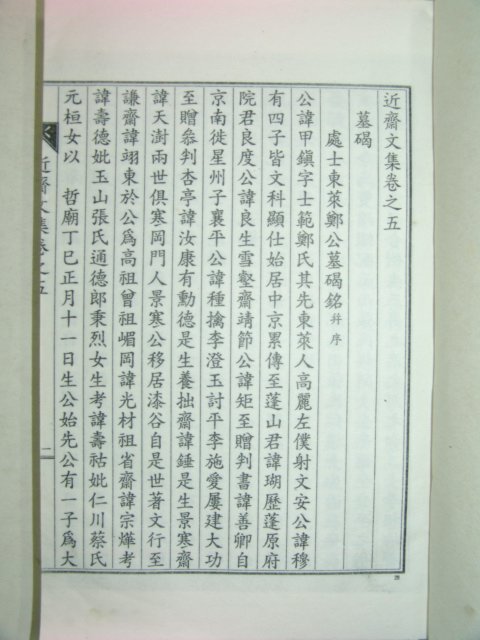 近齋文集卷之五
墓碣
處士東萊鄭公墓碣銘 幷序
公諱甲鎭字士範鄭氏其先東萊人高麗左僕射文安公諱穆
有四子皆文科顯仕始居中京累傳至蓬山君諱瑚歷蓬原府
院君良度公諱良生雪壑齋靖節公諱矩至贈判書諱善卿自
京南徙星州子襄平公諱種擒李澄玉討平李施愛屢建大功
至贈叅判杏亭諱汝康有勳德是生養拙齋諱錘是生景寒齋
諱天澍兩世俱寒岡門人景寒公移居漆谷自是世著文行至
謙齋諱翊東於公爲高祖曾祖嵋岡諱光材祖省齋諱宗燁考
諱壽德妣玉山張氏通德郞秉烈女生考諱壽祜妣仁川蔡氏
元桓女以 哲廟丁巳正月十一日生公始先公有一子爲大
近齋文集卷之五
一